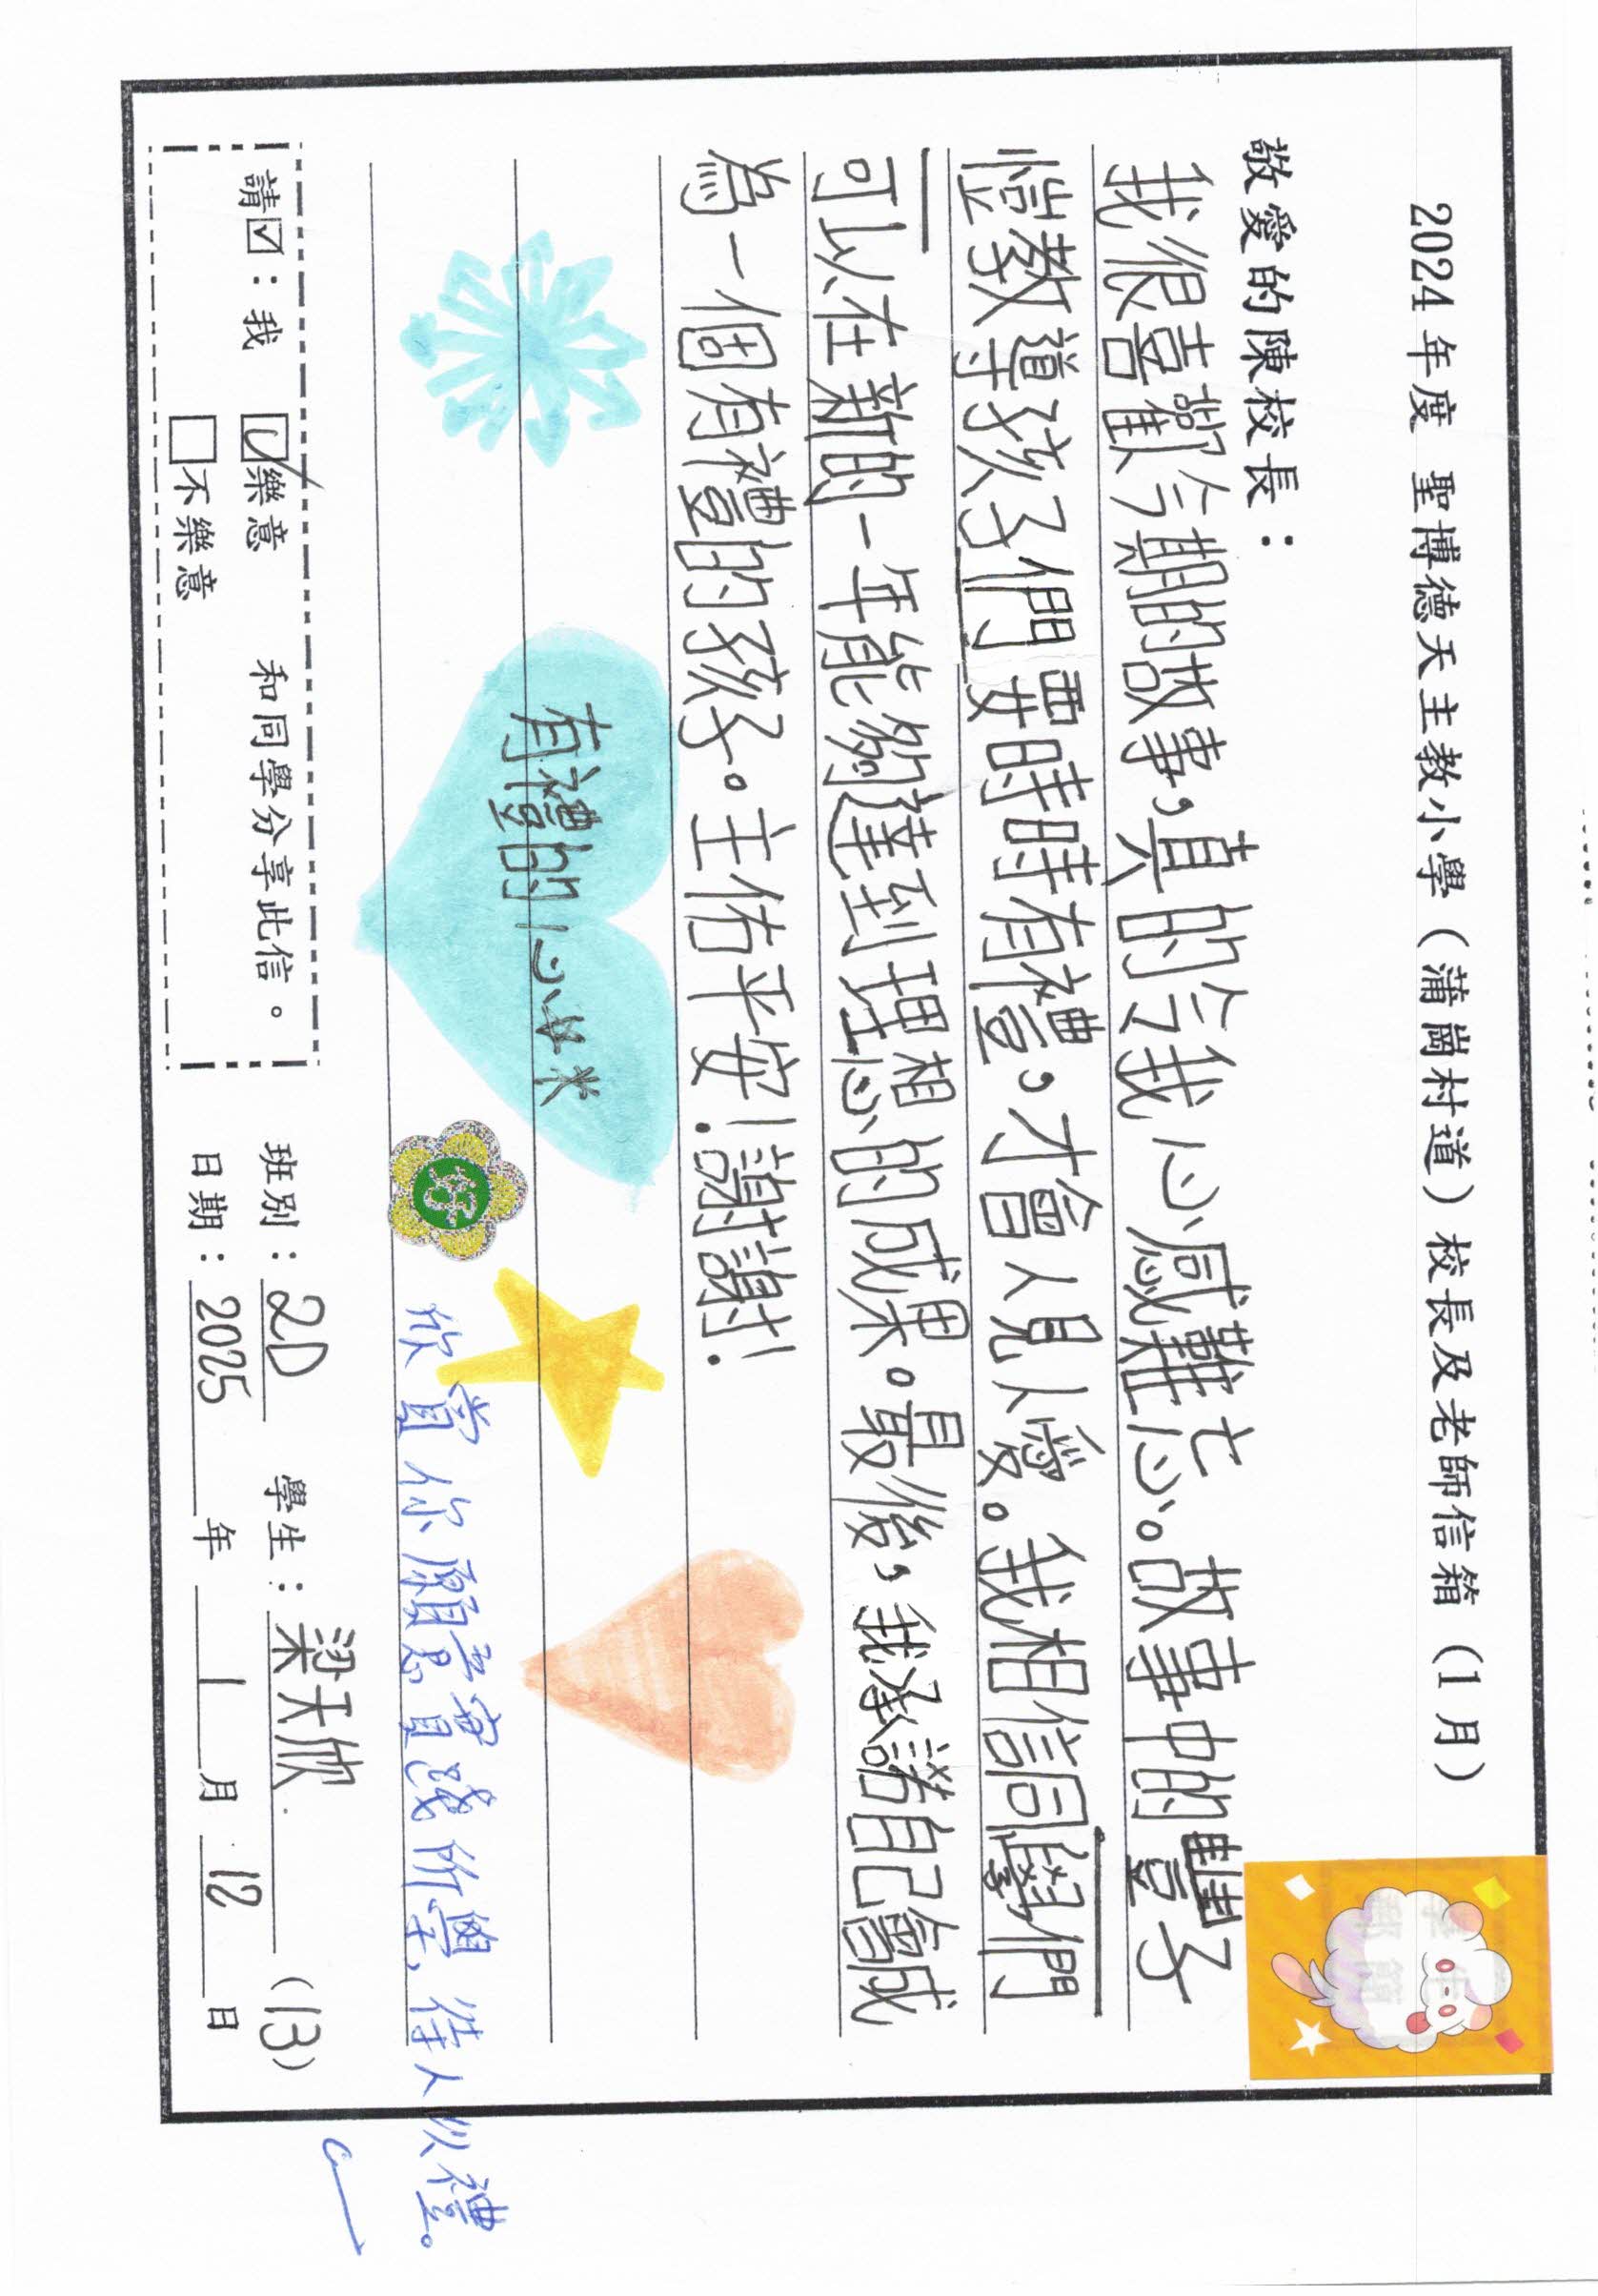 2024年度 聖博德天主教小學（蒲崗村道）校長及老師信箱（1月）
敬愛的陳校長：
我很喜歡今期的故事，真的令我心感難忘。故事中的豐子
愷教導孩子們要時時有禮，才會人見人愛。我相信同學們
可以在新的一年能夠達到理想的成果。最後，我承諾自己會成
為一個有禮的孩子。主佑平安！謝謝！
有禮的心
欣賞你願意實踐所學，待人以禮。
請☑：我 ☑樂意 和同學分享此信。
□不樂意
班別：2D 學生：梁天欣（13）
日期：2025年1月12日